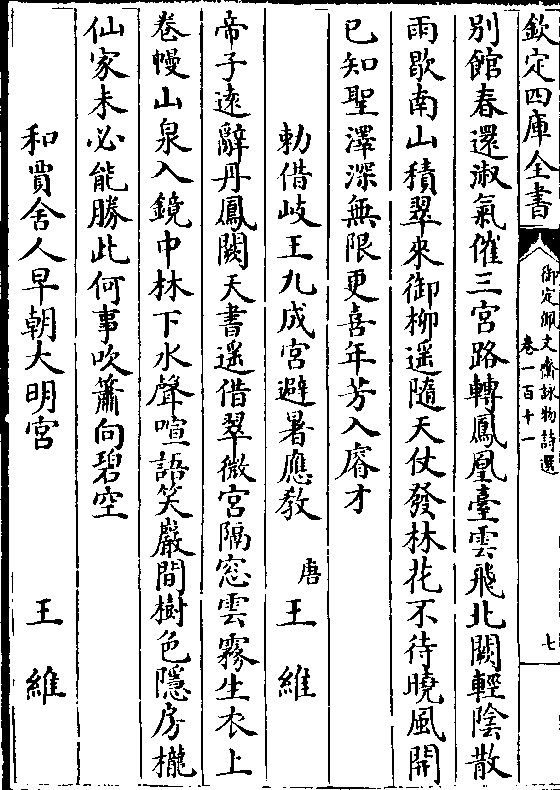 欽定四庫全書
御定佩文齋詠物詩選
卷一百十一
七
別館春還淑氣催三宮路轉鳳凰臺雲飛北闕輕陰散
雨歇南山積翠來御柳遥隨天仗發林花不待曉風開
已知聖澤深無限更喜年芳入睿才
勅借岐王九成宮避暑應教
唐
王維
帝子逺辭丹鳳闕天書遥借翠微宮隔窓雲霧生衣上
卷幔山泉入鏡中林下水聲喧語笑巖間樹色隱房櫳
仙家未必能勝此何事吹簫向碧空
和賈舍人早朝大明宮
王維